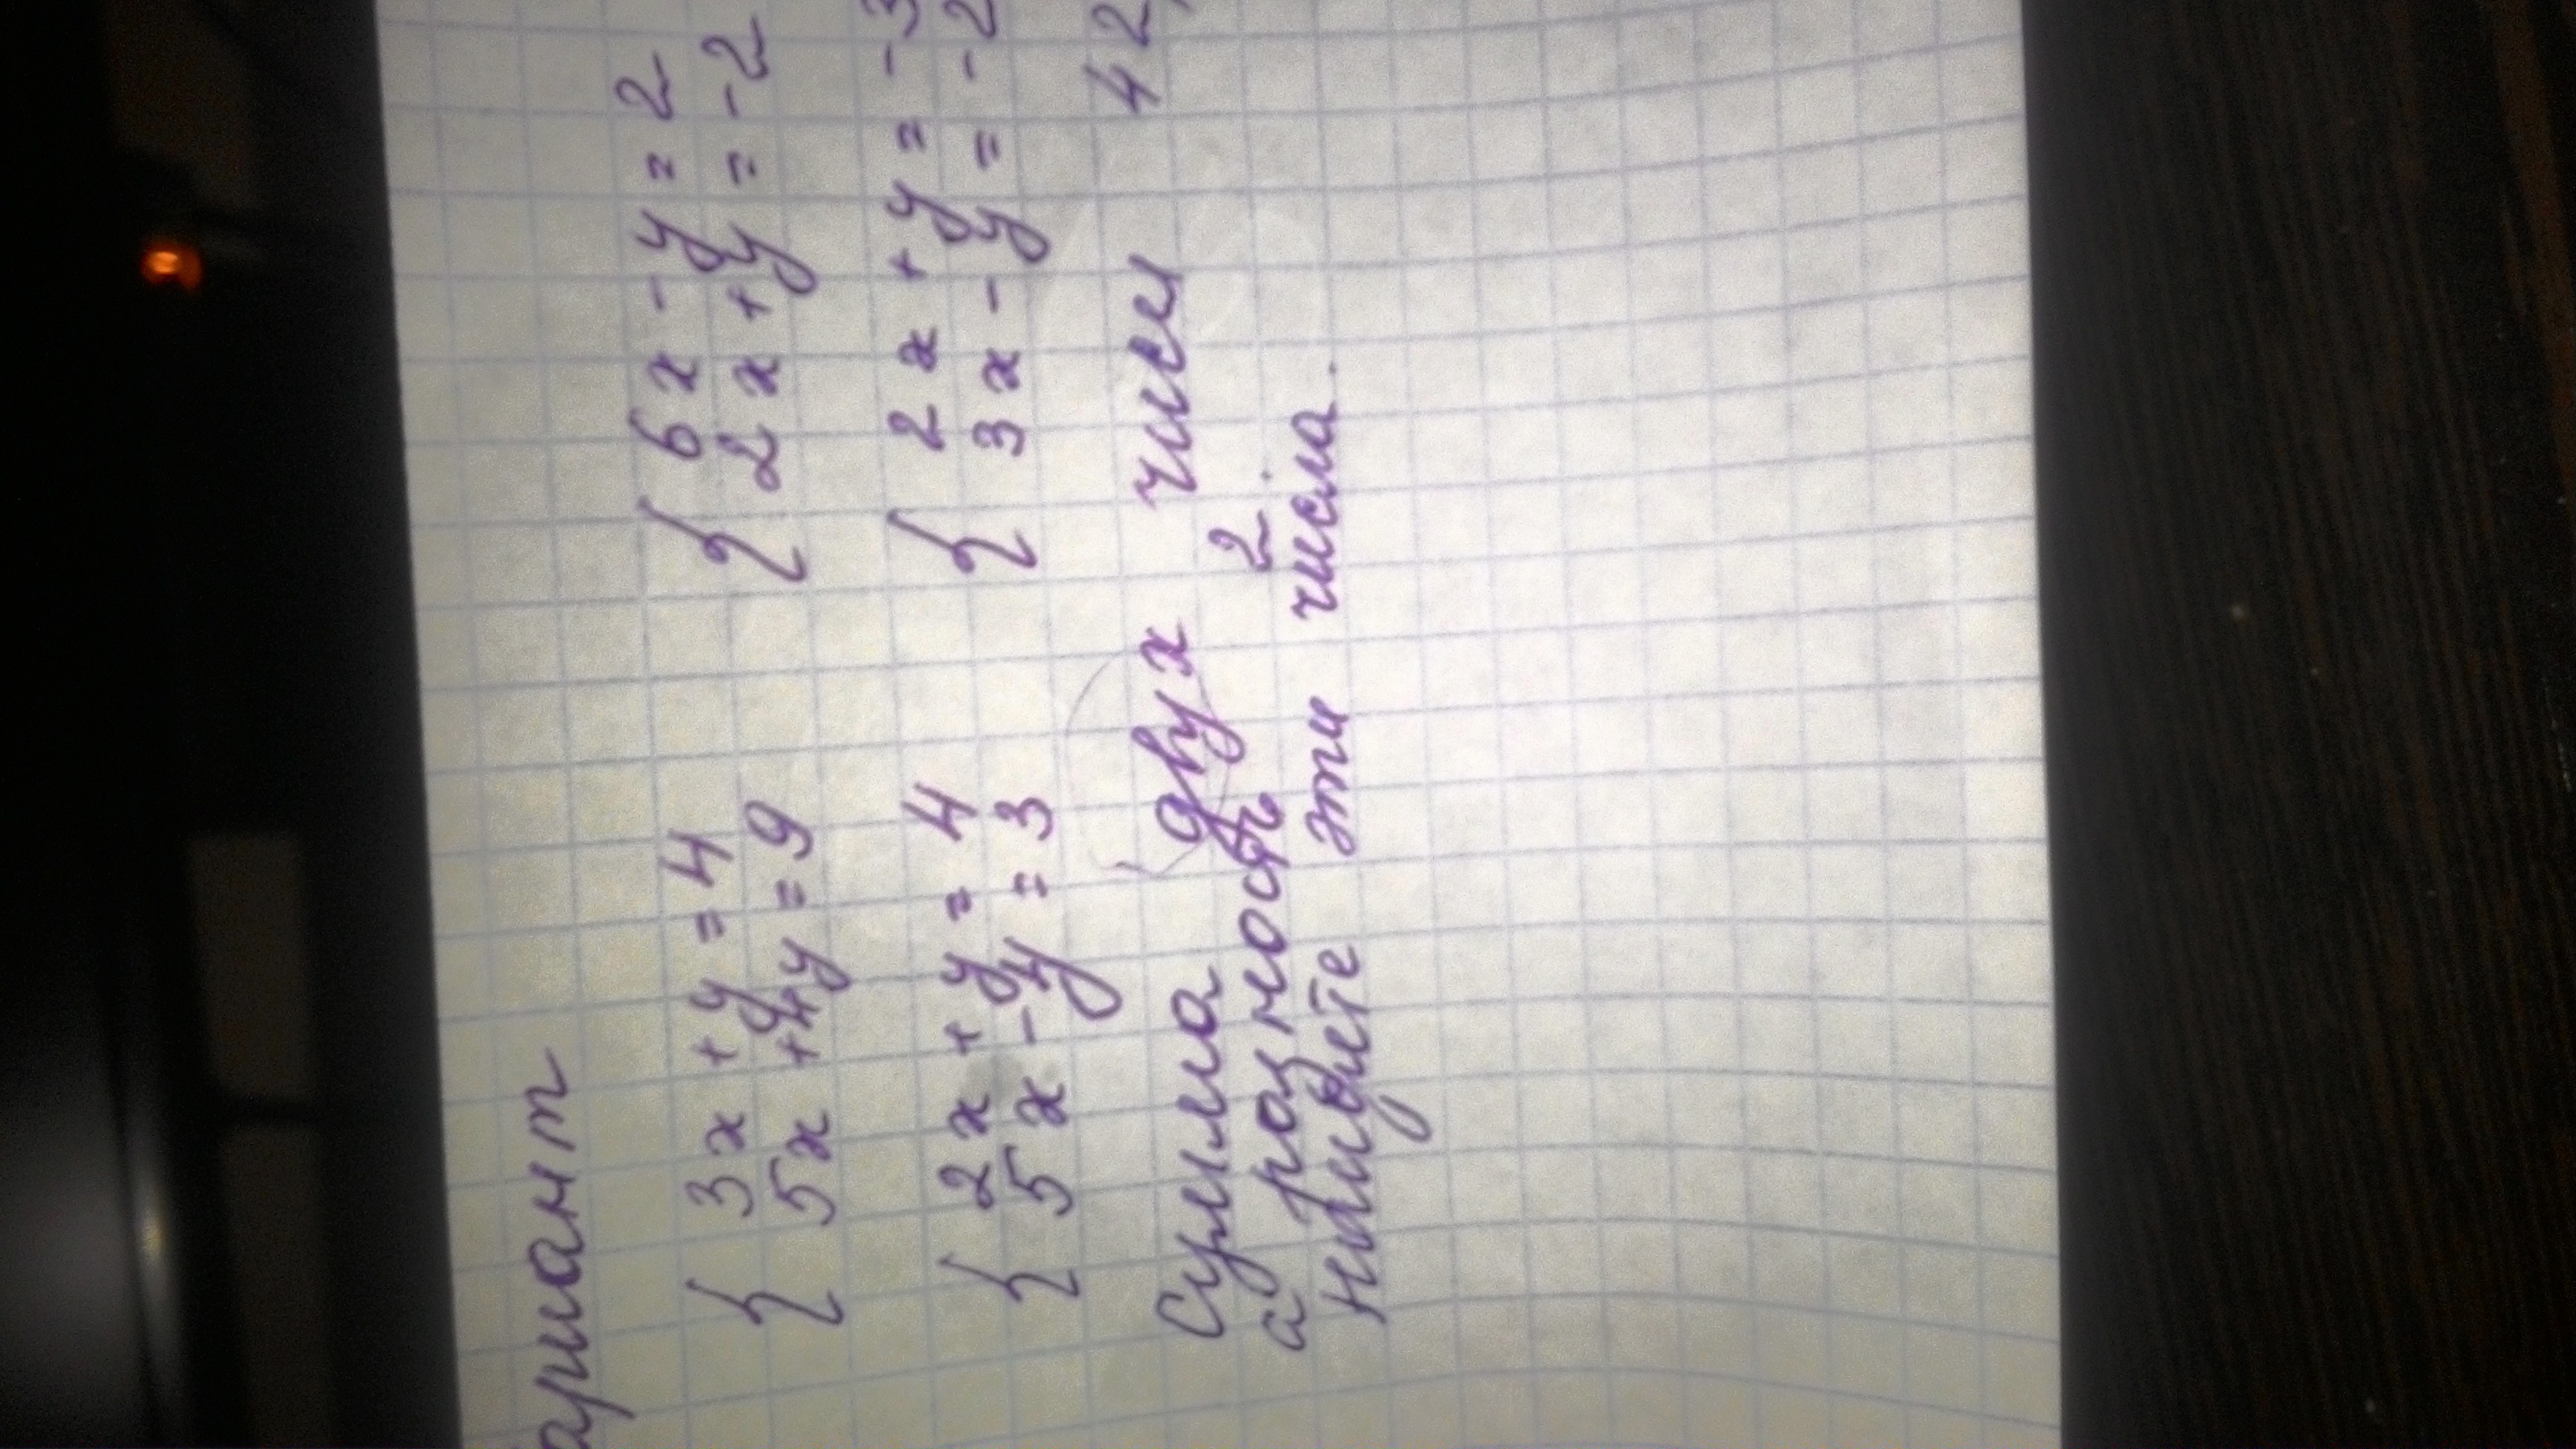 { 3x + y = 4 { 6x - y = 2
5x + 4y = 9 2x + y = -2
{ 2x + y = 4 { 2x + y = -3
5x - y = 3 3x - y = -2
Сумма двух чисел 42,
а разность 2.
найдите эти числа.